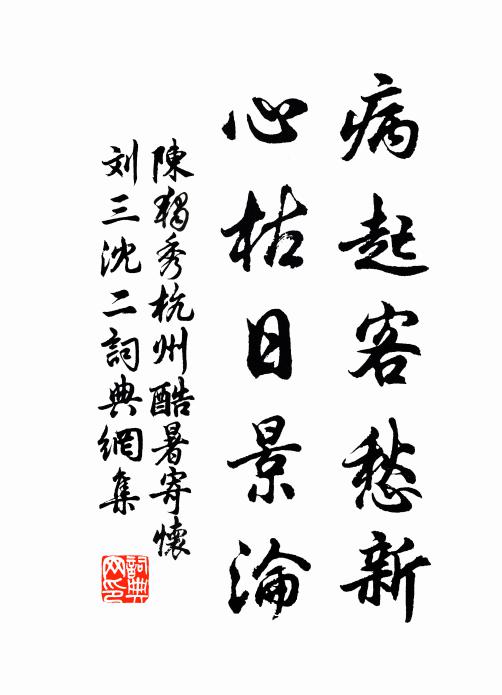 病起客愁新
心枯日景淪
陳獨秀杭州酷暑寄懷
刘三沈二詞典網集
詞典
网印